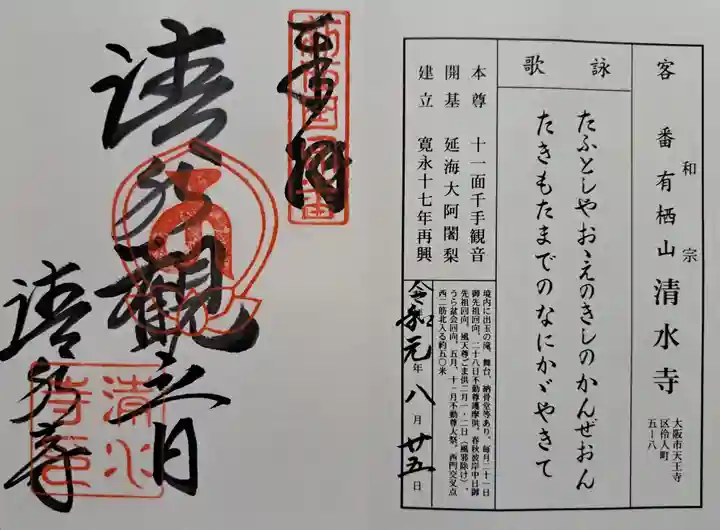 奉拝
清水観音
清水寺
清水寺印
客番 有栖山 清水寺
和宗
大阪市天王寺
区伶人町
五−八
詠歌
たふとしやおゝえのきしのかんぜおん
たきもたまでのなにかゞやきて
本尊 十一面千手観音
開基 延海大阿闍梨
建立 寛永十七年再興
境内に出玉の滝、舞台、納骨堂等あり。毎月二十一日
御先祖回向、二十八日不動尊護摩供。春秋彼岸中日御
先祖回向、風天尊ごま供二月一・二日（風邪除け）、
うら盆会回向、五月、十一月不動尊大祭。西門交叉点
西二筋北入る約五〇米
令和元年八月廿五日